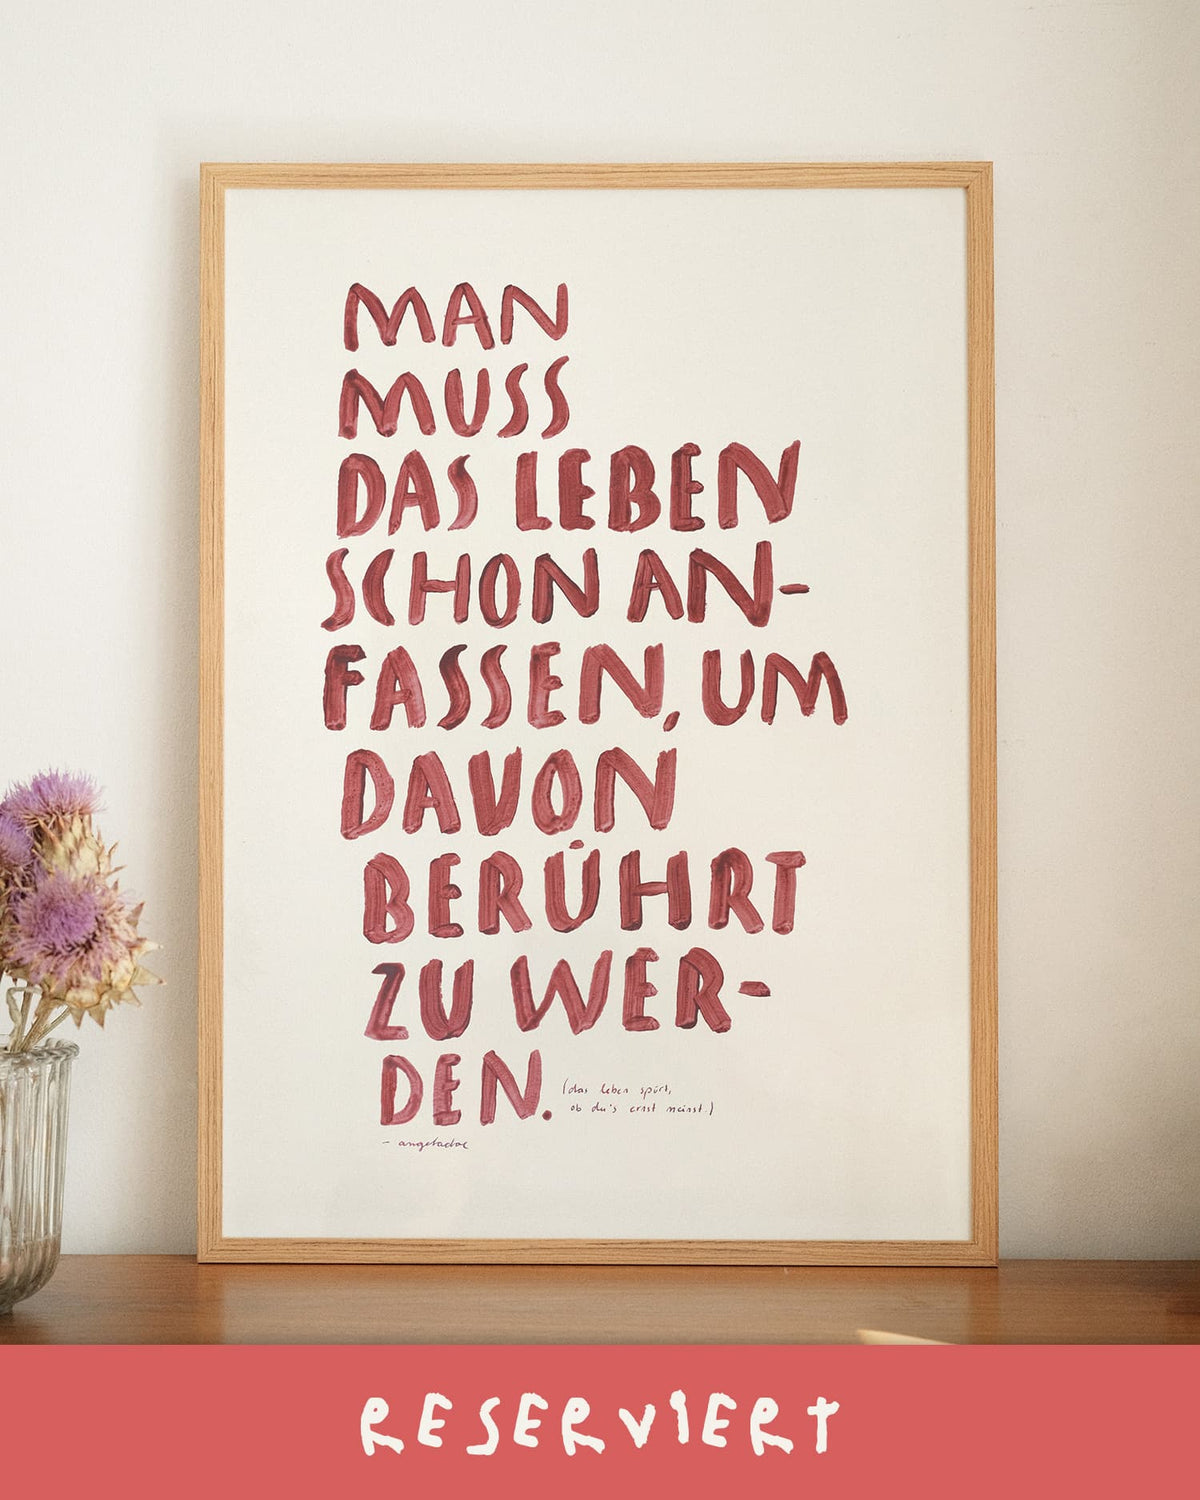 MAN
MUSS
DAS LEBEN
SCHON AN-
FASSEN, UM
DAVON
BERÜHRT
ZU WER-
DEN.
(das leben spürt,
ob du's ernst meinst.)
- angetadoe
RESERVIERT